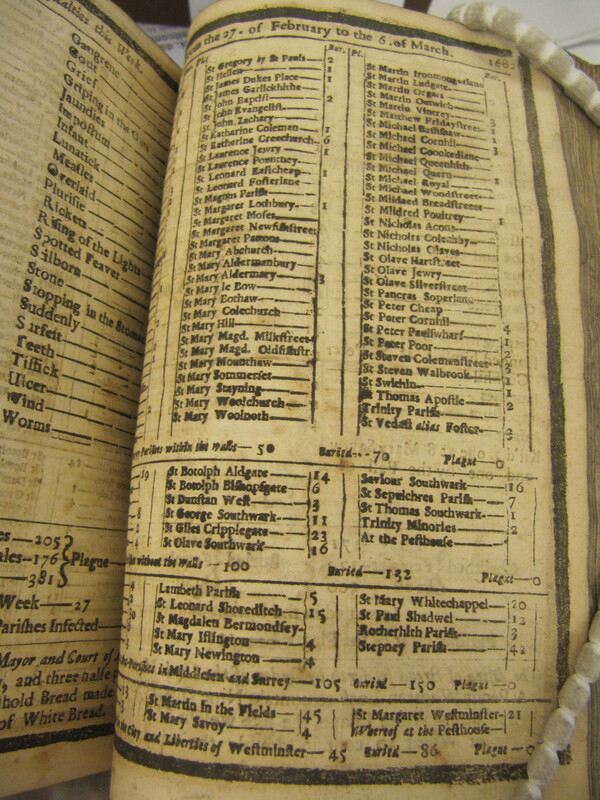 this Week.
Gangrene
Gout
Grief
Griping in the Guts
Jaundies
Impostum
Infant
Lunatick
Measles
Overlaid
Plurisie
Rickets
Rising of the Lights
Spotted Feaver
Stilborn
Stone
Stopping in the Stomach
Suddenly
Surfeit
Teeth
Tissick
Ulcer
Wind
Worms
es — 205
ales — 176 } Plague
— 381
Week — 27
Parishes Infected
Mayor and Court of
, and three half
hold Bread made
of White Bread.
the 27. of February to the 6. of March. 168
Bur. Pl. Bur.
St Gregory by St Pauls — 2
St Hellen — 1
St James Dukes Place — 1
St James Garlickhithe
St John Baptist — 2
St John Evangelist
St John Zachary
St Katharine Coleman — 1
St Katharine Creechurch — 6
St Laurence Jewry — 1
St Laurence Pountney
St Leonard Eastcheap — 1
St Leonard Fosterlane
St Magnus Parish
St Margaret Lothbury — 1
St Margaret Moses
St Margaret Newfishstreet
St Margaret Pattons
St Mary Abchurch
St Mary Aldermanbury
St Mary Aldermary — 3
St Mary le Bow
St Mary Bothaw
St Mary Colechurch
St Mary Hill
St Mary Magd. Milkstreet
St Mary Magd. Oldfishstr.
St Mary Mounthaw
St Mary Sommerset
St Mary Stayning
St Mary Woolchurch
St Mary Woolnoth
St Martin Ironmongerlane
St Martin Ludgate
St Martin Orgars
St Martin Outwich
St Martin Vintrey — 3
St Matthew Fridaystreet — 1
St Michael Bassishaw
St Michael Cornhil — 3
St Michael Crookedlane
St Michael Queenhith
St Michael Quern — 1
St Michael Royal
St Michael Woodstreet
St Mildred Breadstreet
St Mildred Poultrey — 1
St Nicholas Acons
St Nicholas Coleabby
St Nicholas Olaves
St Olave Hartstreet
St Olave Jewry
St Olave Silverstreet
St Pancras Soperlane
St Peter Cheap
St Peter Cornhil
St Peter Paulswharf — 4
St Peter Poor — 1
St Steven Colemanstreet — 2
St Steven Walbrook
St Swithin — 1
St Thomas Apostle — 2
Trinity Parish
St Vedast alias Foster
Parishes within the walls — 50 Buried — 70 Plague — 0
St Botolph Aldgate — 14
St Botolph Bishopsgate — 6
St Dunstan West — 3
St George Southwark — 11
St Giles Cripplegate — 23
St Olave Southwark — 16
Saviour Southwark — 16
St Sepulchres Parish — 7
St Thomas Southwark — 1
Trinity Minories — 2
At the Pesthouse
without the walls — 100 Buried — 132 Plague — 0
Lambeth Parish — 5
St Leonard Shoreditch — 15
St Magdalen Bermondsey
St Mary Islington — 4
St Mary Newington — 4
St Mary Whitechappel — 20
St Paul Shadwel — 12
Rotherhith Parish — 3
Stepney Parish — 42
Parishes in Middlesex and Surrey — 105 Buried — 150 Plague — 0
St Martin in the Fields — 45
St Mary Savoy — 4
St Margaret Westminster — 21
Whereof at the Pesthouse
the City and Liberties of Westminster — 45 Buried — 86 Plague — 0